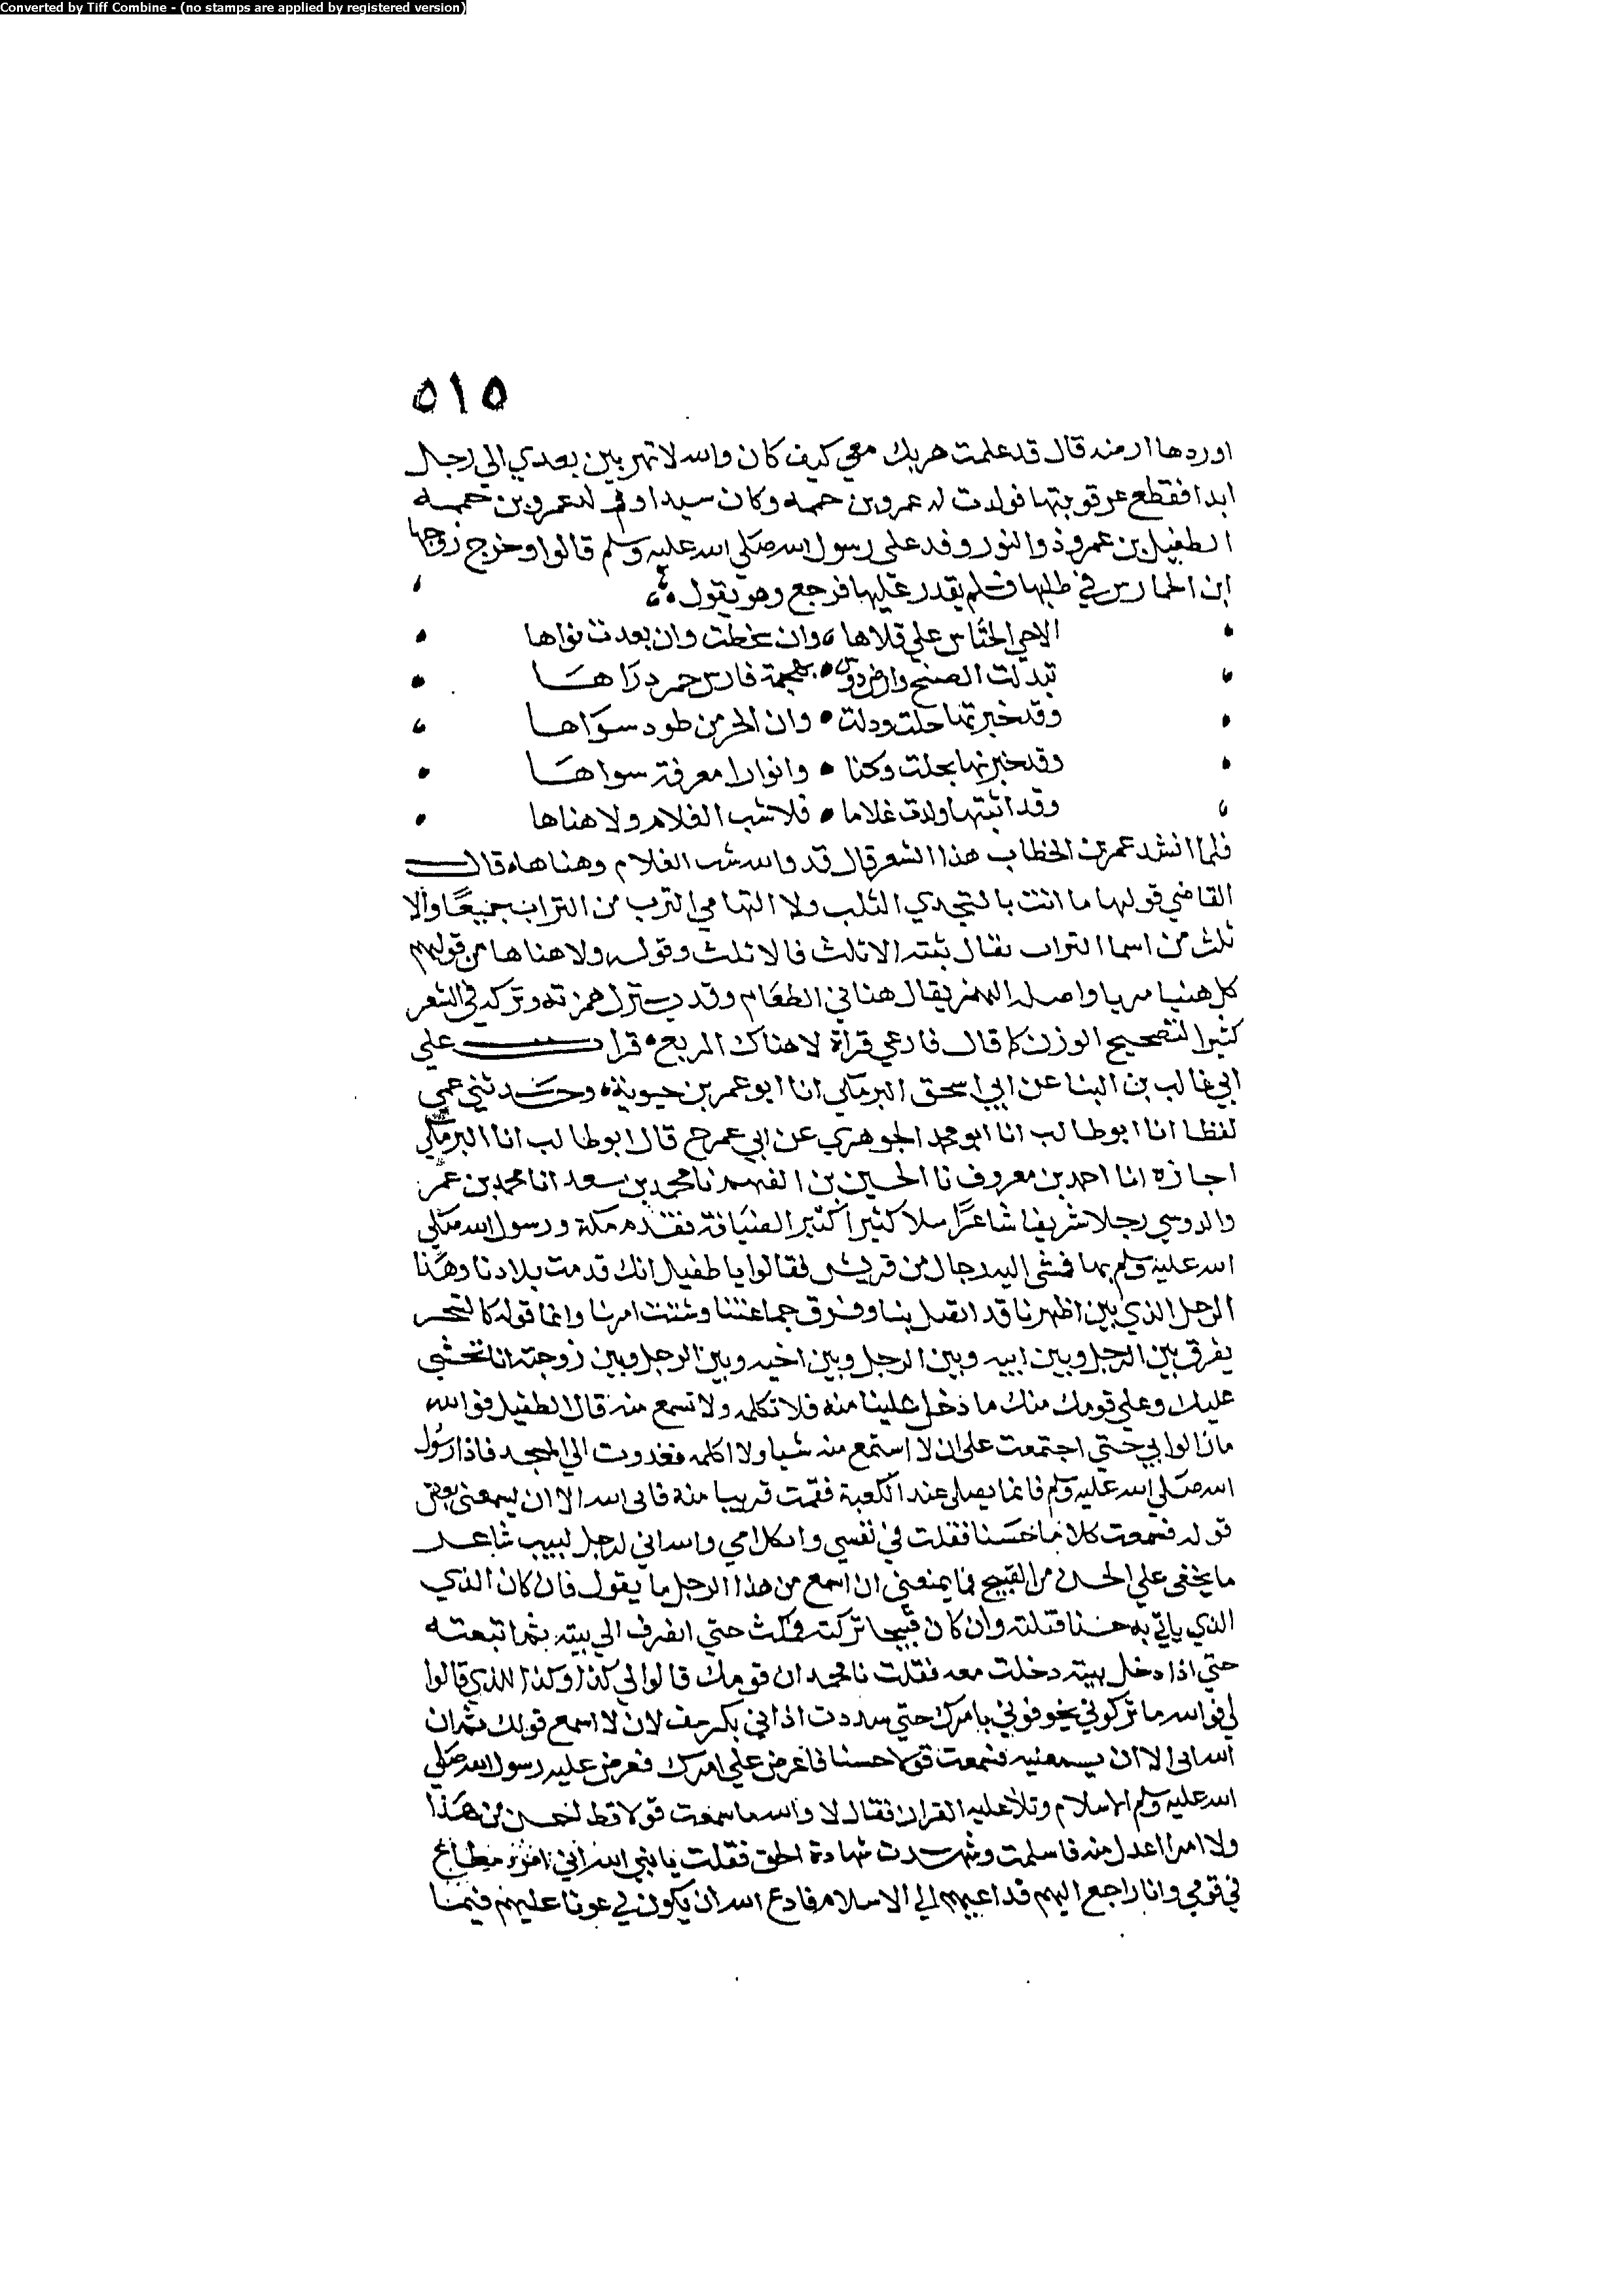 Converted by Tiff Combine - (no stamps are applied by registered version)
٥١٥
اوردها ارمنه قال قد علمت هربك معي كيف كان والله لا تهربين بعدي الي رجل
ابدا فقطع عرقوبتها فولدت له عمرو بن حممه وكان سيدا وفي لد عمرو بن حممه
الطفيل بن عمرو ذو النور وفد علي رسول الله صلي الله عليه وسلم قالوا وخرج زوجها
ابن الحمارس في طلبها فلم يقدر عليها فرجع وهو يقول
الاحي الخناس علي قلاها وان سخطت وان بعدت نواها
تبدلت الصنيح وارض دوس بهجمة فارس حمر دراها
وقد خبرتها حلت ودلت وان الحر من طود سواها
وقد خبرتها بجلت وكنا وانوارا معرفة سواها
وقد انبتها ولدت غلاما فلا شب الغلام ولا هناها
فلما انشد عمر بن الخطاب هذا الشعر قال قد والله شب الغلام وهناها قال
القاضي قولها ما انت بالنجدي الثلب ولا التهامي الترب من التراب جميعا والا
ثلث من اسما التراب يقال بثته الاثلث فالاثلث وقوله ولا هناها من قولهم
كل هنيا مريا واصله الهمز يقال هناني الطعام وقد يترك همزته وتركه في الشعر
كثيرا لتصحيح الوزن كما قال فارعي قراة لا هناك المربع قرات علي
ابي غالب بن البنا عن ابي اسحق البرمكي انا ابو عمر بن حيوية وحدثني عمي
لفظا انا ابو طالب انا ابو محمد الجوهري عن ابي عمر ح قال ابو طالب انا البرمكي
اجازة انا احمد بن معروف نا الحسين بن الفهم نا محمد بن سعد انا محمد بن عمر
والدوسي رجلا شريفا شاعرا ملا كثيرا كثير الضيافة فقدم مكة ورسول الله صلي
الله عليه وسلم بها فمشي اليه رجال من قريش فقالوا يا طفيل انك قدمت بلادنا وهذا
الرجل الذي بين اظهرنا قد اعضل بنا وفرق جماعتنا وشتت امرنا وانما قوله كالسحر
يفرق بين الرجل وبين ابيه وبين الرجل وبين اخيه وبين الرجل وبين زوجته انا نخشي
عليك وعلي قومك منك ما دخل علينا منه فلا تكلمه ولا تسمع منه قال الطفيل فوالله
ما زالوا بي حتي اجتمعت علي ان لا استمع منه شيا ولا اكلمه فغدوت الي المسجد فاذا رسول
الله صلي الله عليه وسلم قائما يصلي عند الكعبة فقمت قريبا منه فابي الله الا ان يسمعني بعض
قوله فسمعت كلاما حسنا فقلت في نفسي واثكل امي والله اني لرجل لبيب شاعر
ما يخفي علي الحسن من القبيح فما يمنعني ان اسمع من هذا الرجل ما يقول فان كان الذي
الذي ياتي به حسنا قبلته وان كان قبيحا تركته فمكثت حتي انصرف الي بيته ثم اتبعته
حتي اذا دخل بيته دخلت معه فقلت يا محمد ان قومك قالوا لي كذا وكذا للذي قالوا
لي فوالله ما تركوني يخوفوني بامرك حتي سددت اذاني بكرسف لان لا اسمع قولك ثم ان
الله ابي الا ان يسمعنيه فسمعت قولا حسنا فاعرض علي امرك فعرض عليه رسول الله صلي
الله عليه وسلم الاسلام وتلا عليه القران فقال لا والله ما سمعت قولا قط احسن من هذا
ولا امرا اعدل منه فاسلمت وشهدت شهادة الحق فقلت يا نبي الله اني امرؤ مطاع
في قومي وانا راجع اليهم فداعيهم الي الاسلام فادع الله ان يكون لي عونا عليهم فيما